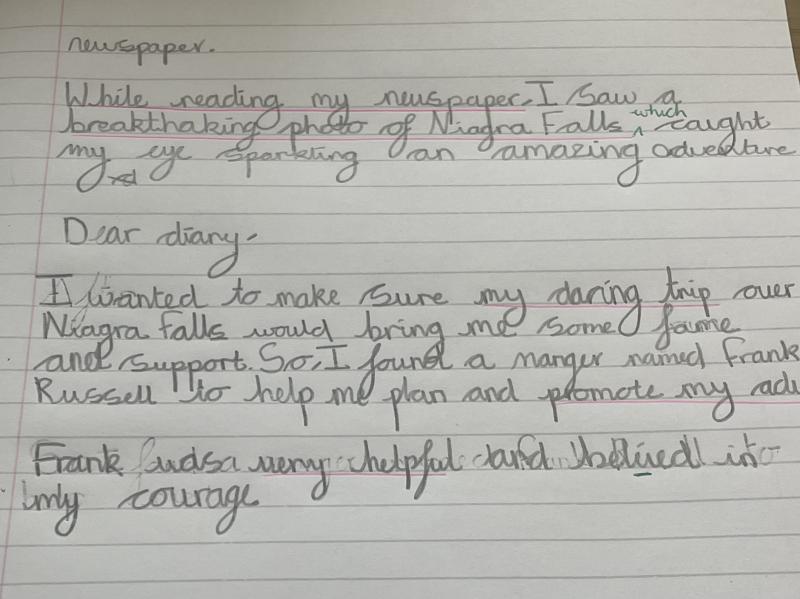 newspaper.
While reading my newspaper, I saw a
breakthaking photo of Niagra Falls which caught
my eye sparkling an amazing adveture
Dear diary.
I wanted to make sure my daring trip over
Niagra falls would bring me some fame
and support. So, I found a manger named Frank
Russell to help me plan and promote my adv
Frank very helpful and belived in
my courage